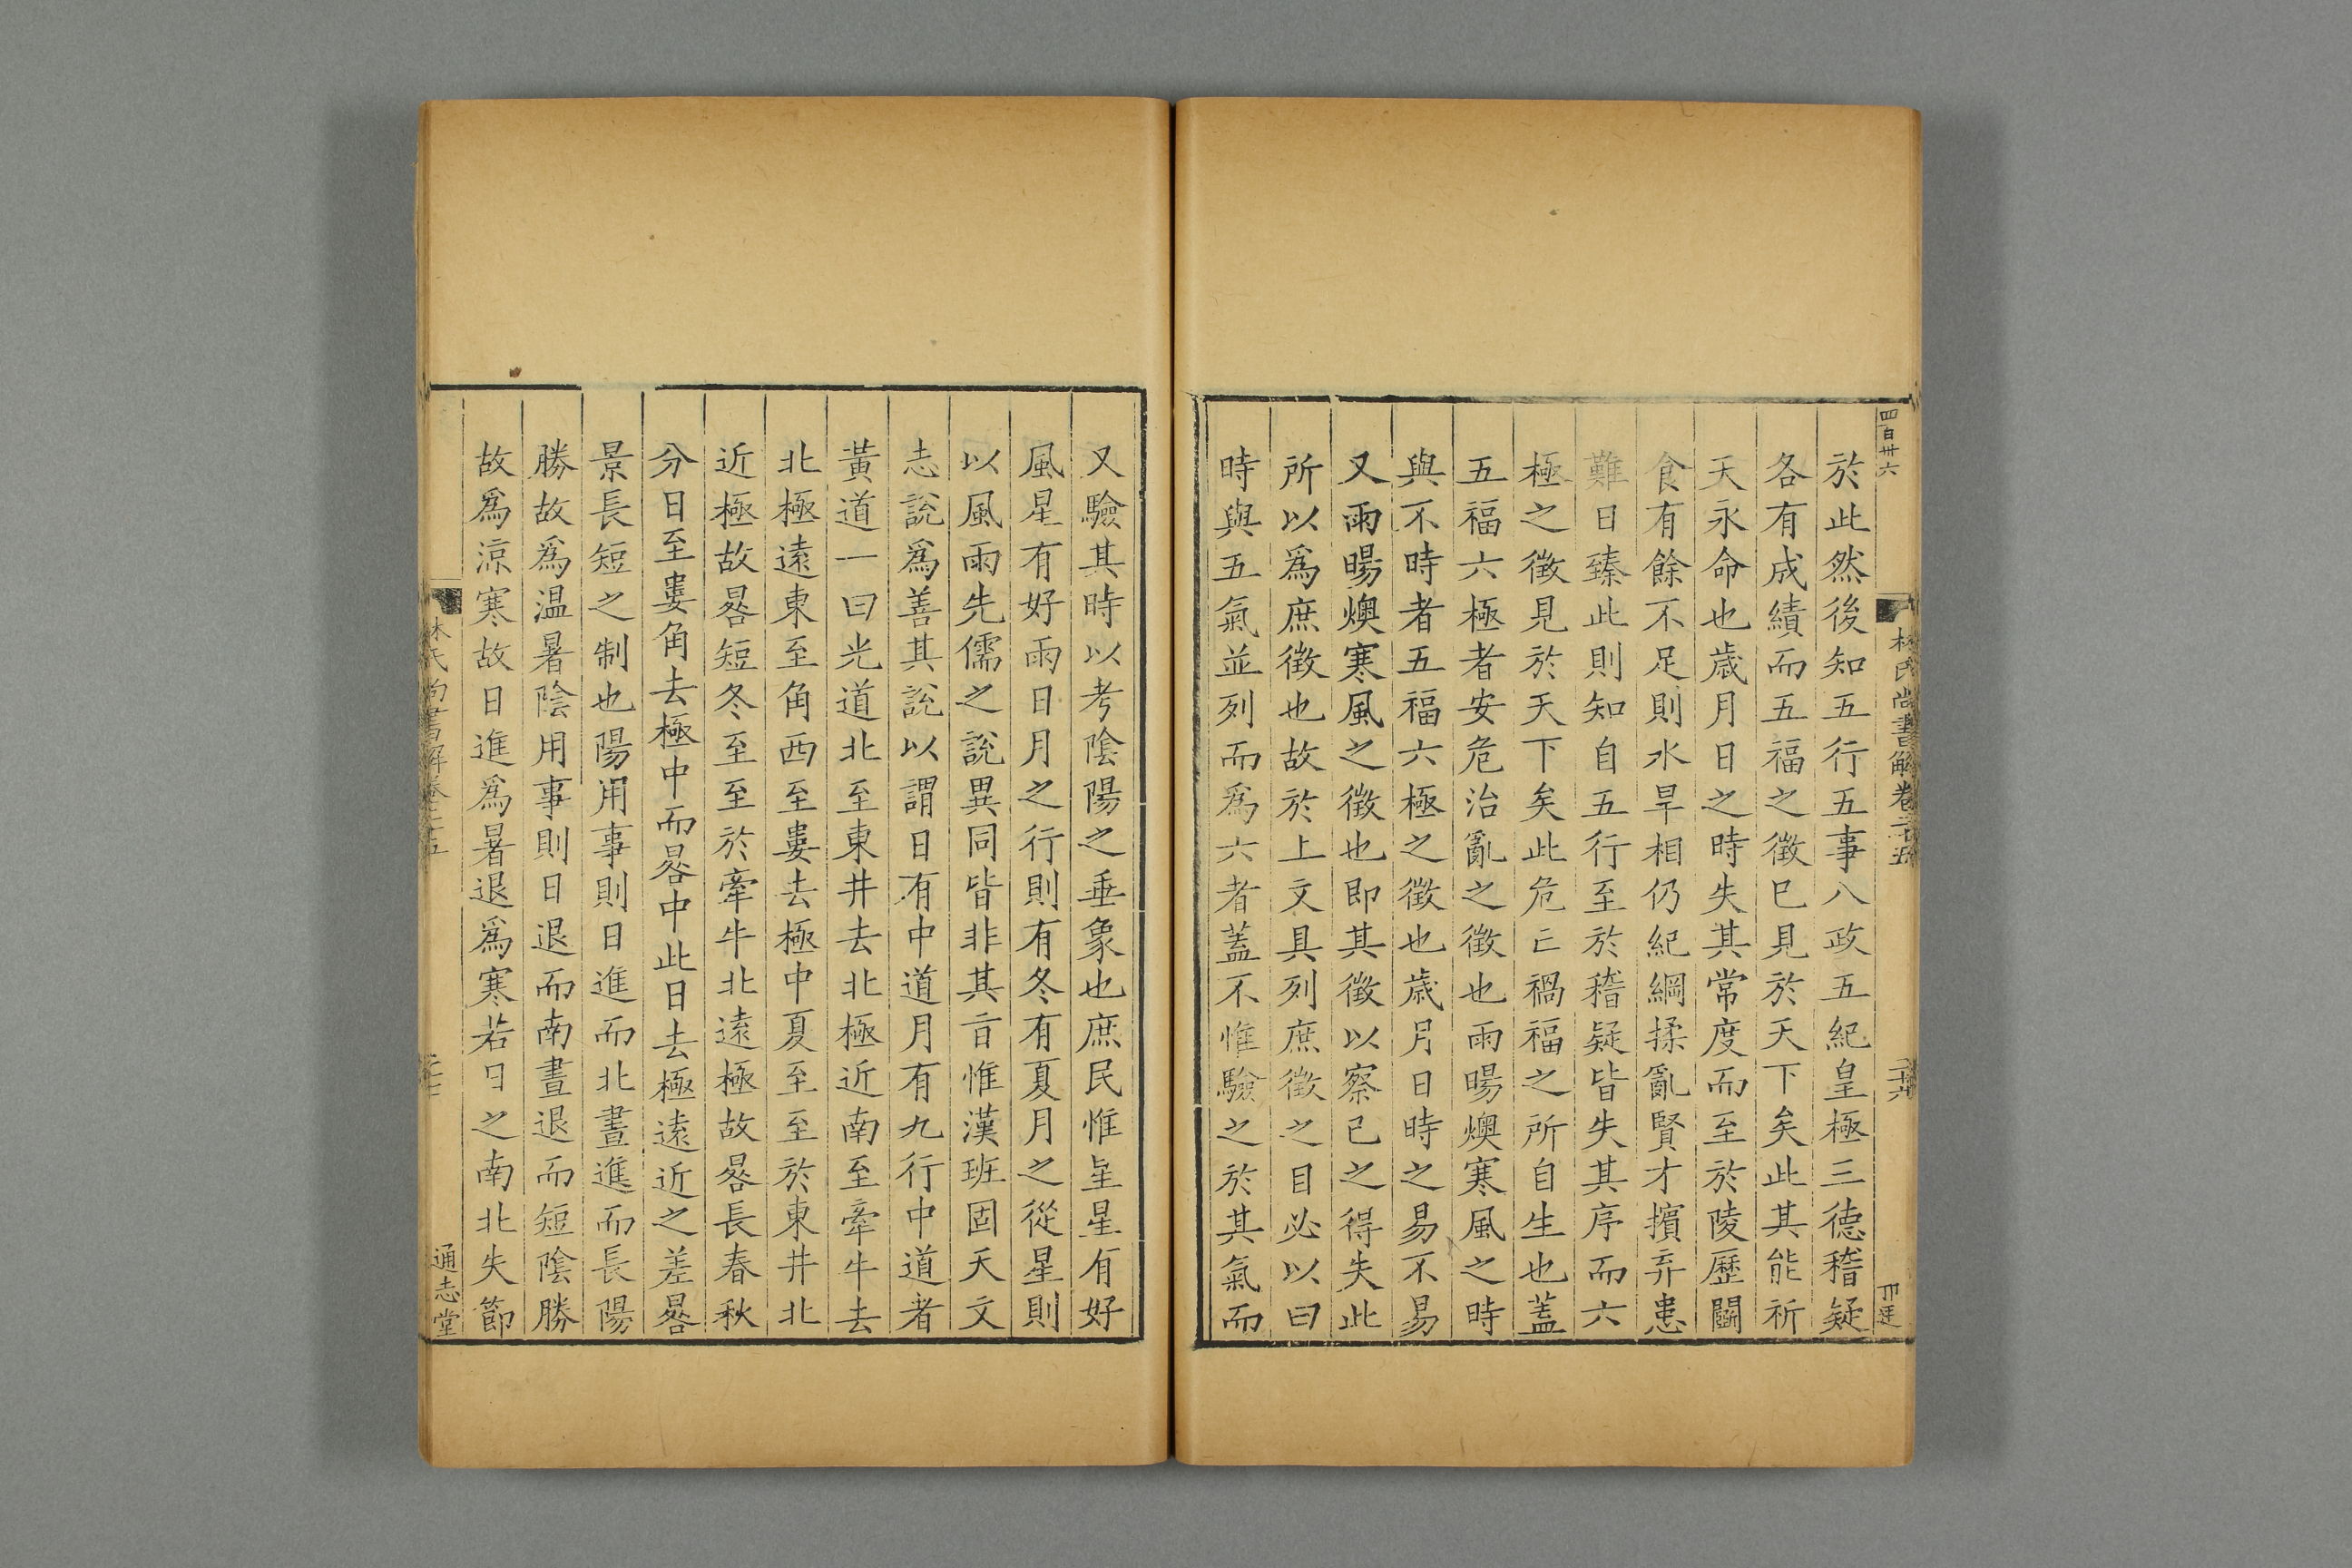 四百卅六
林氏尚書解卷二十五
二十六
於此然後知五行五事八政五紀皇極三德稽疑
各有成績而五福之徵已見於天下矣此其能祈
天永命也歲月日之時失其常度而至於陵歷鬭
食有餘不足則水旱相仍紀綱揉亂賢才擯弃患
難日臻此則知自五行至於稽疑皆失其序而六
極之徵見於天下矣此危亡禍福之所自生也蓋
五福六極者安危治亂之徵也雨暘燠寒風之時
與不時者五福六極之徵也歲月日時之易不易
又雨暘燠寒風之徵也即其徵以察已之得失此
所以爲庶徵也故於上文具列庶徵之目必以曰
時與五氣並列而爲六者蓋不惟驗之於其氣而
又驗其時以考陰陽之垂象也庶民惟星星有好
風星有好雨日月之行則有冬有夏月之從星則
以風雨先儒之說異同皆非其旨惟漢班固天文
志說爲善其說以謂日有中道月有九行中道者
黃道一曰光道北至東井去北極近南至牽牛去
北極遠東至角西至婁去極中夏至至於東井北
近極故晷短冬至至於牽牛北遠極故晷長春秋
分日至婁角去極中而晷中此日去極遠近之差晷
景長短之制也陽用事則日進而北晝進而長陽
勝故爲温暑陰用事則日退而南晝退而短陰勝
故爲涼寒故日進爲暑退爲寒若日之南北失節
林氏尚書解卷二十五
通志堂